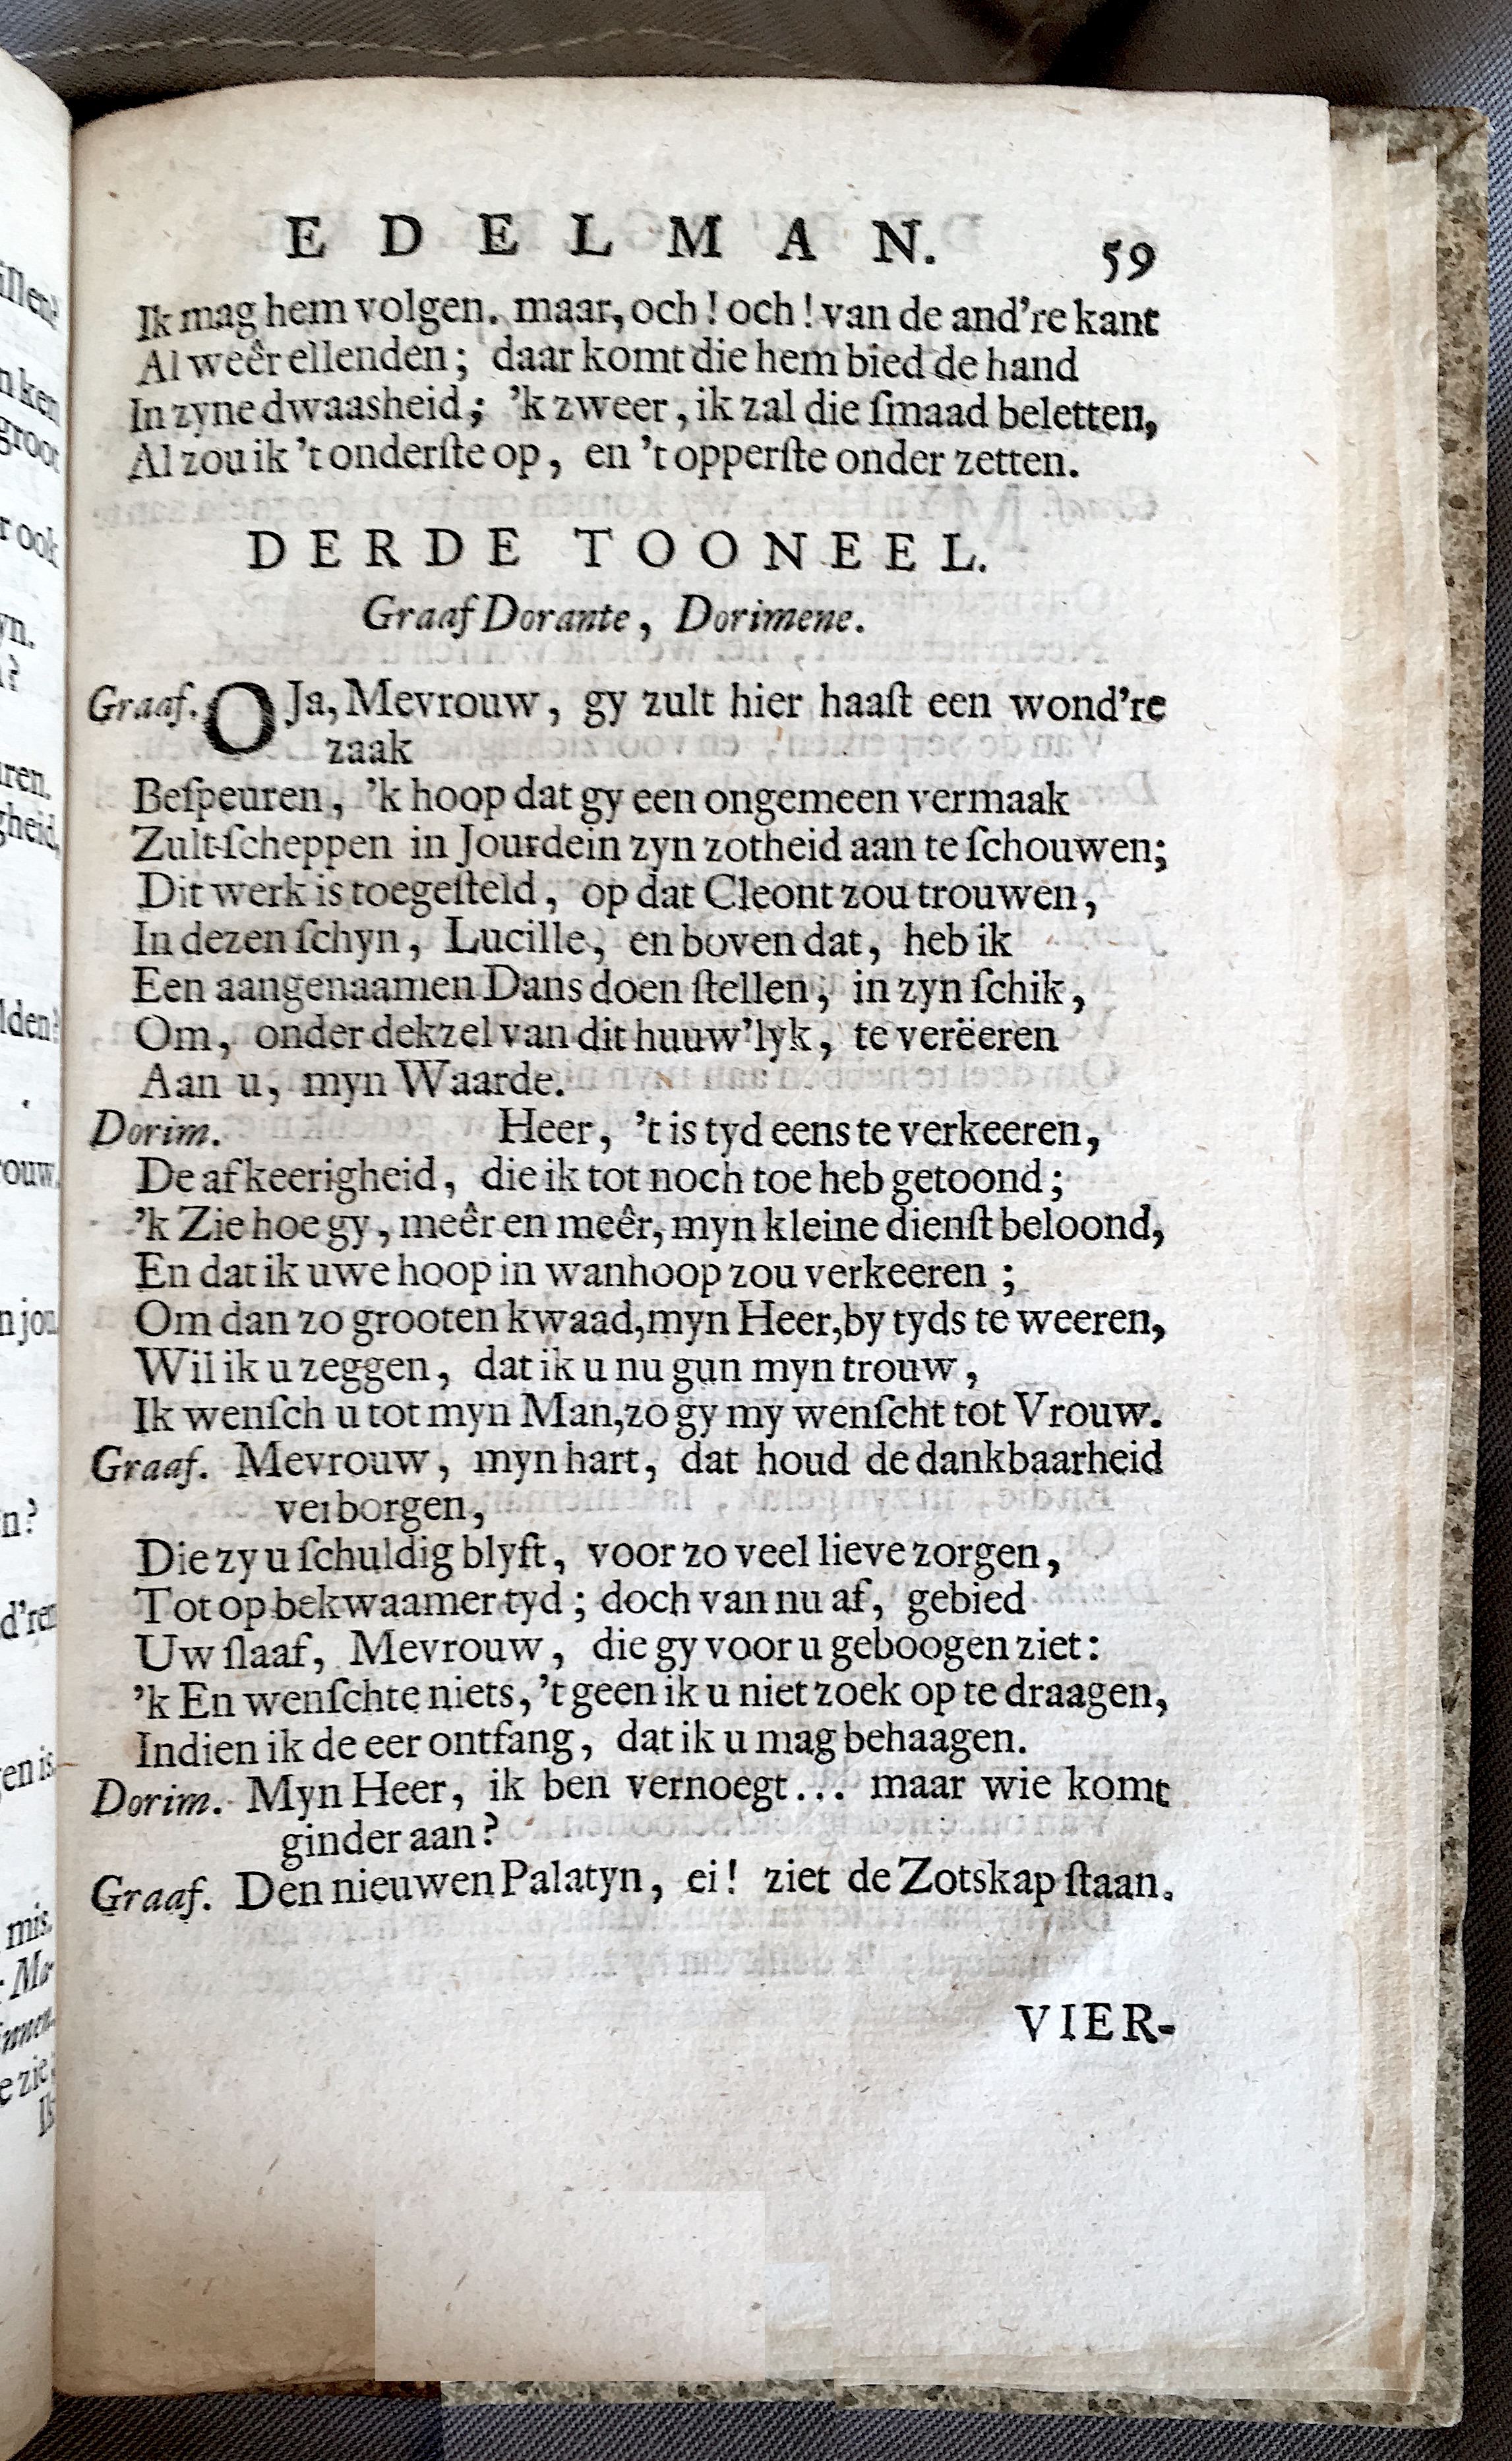 EDELMAN. 59
Ik mag hem volgen. maar, och! och! van de and're kant
Al weêr ellenden; daar komt die hem bied de hand
In zyne dwaasheid; 'k zweer, ik zal die ſmaad beletten,
Al zou ik 't onderſte op, en 't opperſte onder zetten.
DERDE TOONEEL.
Graaf Dorante, Dorimene.
Graaf. O Ja, Mevrouw, gy zult hier haaſt een wond're
zaak
Beſpeuren, 'k hoop dat gy een ongemeen vermaak
Zult ſcheppen in Jourdein zyn zotheid aan te ſchouwen;
Dit werk is toegeſteld, op dat Cleont zou trouwen,
In dezen ſchyn, Lucille, en boven dat, heb ik
Een aangenaamen Dans doen ſtellen, in zyn ſchik,
Om, onder dekzel van dit huuw'lyk, te verëeren
Aan u, myn Waarde.
Dorim. Heer, 't is tyd eens te verkeeren,
De afkeerigheid, die ik tot noch toe heb getoond;
'k Zie hoe gy, meêr en meêr, myn kleine dienſt beloond,
En dat ik uwe hoop in wanhoop zou verkeeren;
Om dan zo grooten kwaad, myn Heer, by tyds te weeren,
Wil ik u zeggen, dat ik u nu gun myn trouw,
Ik wenſch u tot myn Man, zo gy my wenſcht tot Vrouw.
Graaf. Mevrouw, myn hart, dat houd de dankbaarheid
verborgen,
Die zy u ſchuldig blyft, voor zo veel lieve zorgen,
Tot op bekwaamer tyd; doch van nu af, gebied
Uw ſlaaf, Mevrouw, die gy voor u geboogen ziet:
'k En wenſchte niets, 't geen ik u niet zoek op te draagen,
Indien ik de eer ontfang, dat ik u mag behaagen.
Dorim. Myn Heer, ik ben vernoegt... maar wie komt
ginder aan?
Graaf. Den nieuwen Palatyn, ei! ziet de Zotskap ſtaan.
VIER-